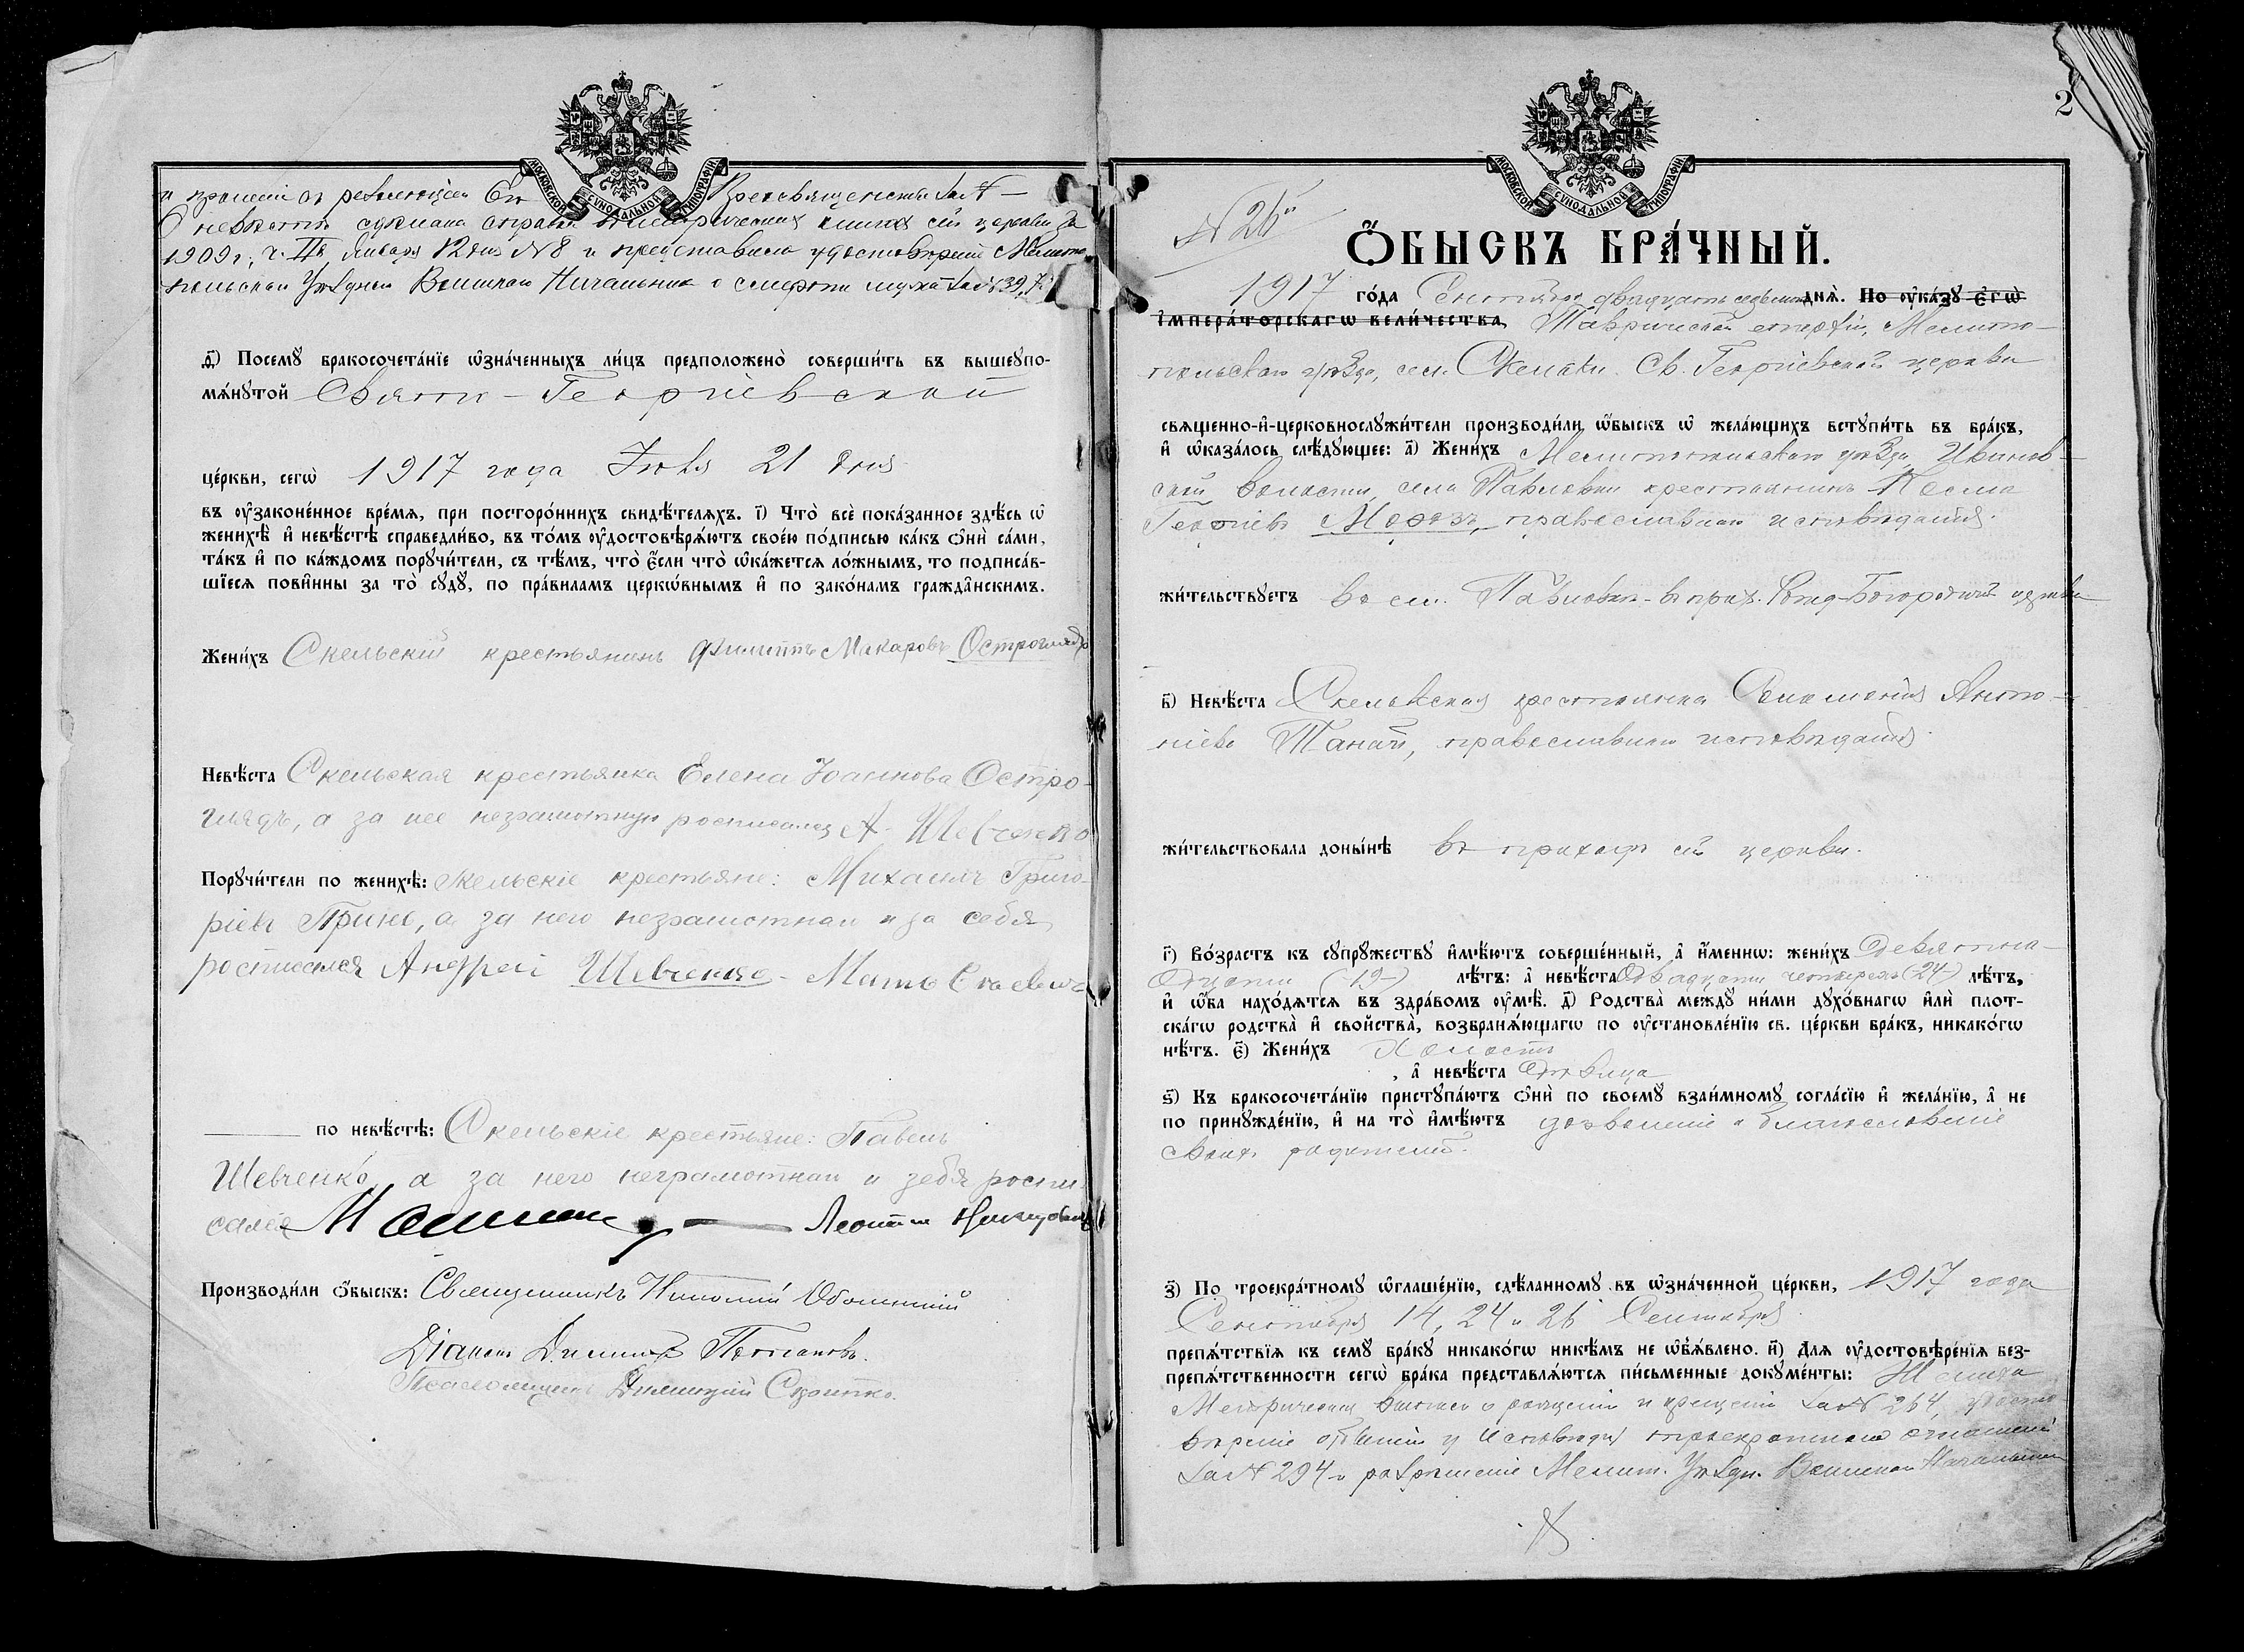 МОСКОВСКОЙ СѴНОДАЛЬНОЙ ТИПОГРАФІИ
1909 г., ч. II, Января 12 дня № 8 и представила удостовѣреніе Мелито-
польскаго Уѣзднаго Воинскаго Начальника о смерти мужа за № 3971
д҃) Посемꙋ бракосочета́нїе ѡ҆зна́ченныхъ ли́цъ предположено̀ соверши́ть въ вышеꙋпо-
мѧ́нꙋтой Свято-Георгіевской
це́ркви, сегѡ̀ 1917 года Іюля 21 дня
въ ᲂу҆зако́ненное вре́мѧ, при посторо́ннихъ свидѣ́телѧхъ. і҃) Что̀ всѐ пока́занное здѣ́сь ѡ҆
женихѣ̀ и҆ невѣ́стѣ справедли́во, въ то́мъ ᲂу҆достовѣрѧ́ютъ свое́ю по́дписью ка́къ ѻ҆нѝ са́ми,
та́къ и҆ по ка́ждомъ порꙋчи́тели, съ тѣ́мъ, что̀ є҆́сли что̀ ѡ҆ка́жетсѧ ло́жнымъ, то подписа́в-
шїесѧ пови́нны за то̀ сꙋдꙋ̀, по пра́виламъ церкѡ́внымъ и҆ по зако́намъ гражда́нскимъ.
Жени́хъ Скельскій крестьянинъ Филиппъ Макаровъ Остроглядъ
Невѣ́ста Скельская крестьянка Елена Іоаннова Остро-
глядъ, а за нее неграмотную росписался А. Шевченко
Порꙋчи́тели по женихѣ̀: Скельскіе крестьяне: Михаилъ Григо-
ріевъ Гринь, а за него неграмотнаго и за себя
росписался Андрей Шевченко
по невѣ́стѣ: Скельскіе крестьяне: Павелъ
Шевченко, а за него неграмотнаго и зебя роспи-
сался
Производи́ли ѻ҆́быскъ: Священникъ Николай Оболенскій
Діаконъ
Псаломщикъ Димитрій
2
МОСКОВСКОЙ СѴНОДАЛЬНОЙ ТИПОГРАФІИ
№ 26й
Ѻ҆́БЫСКЪ БРА́ЧНЫЙ.
1917 го́да Сентября двадцать седьмого днѧ̀. По ᲂу҆ка́зꙋ є҆гѡ̀
і҆мпера́торскагѡ вели́чества, Таврической епархіи, Мелито-
польскаго уѣзда, сел. Скельки Св. Георгіевской церкви
свѧще́нно-и҆-церковнослꙋжи́тели производи́ли ѡ҆́быскъ ѡ҆ жела́ющихъ встꙋпи́ть въ бра́къ,
и҆ ѡ҆каза́лось слѣ́дꙋющее: а҃) Жени́хъ Мелитопольскаго уѣзда, Иванов-
ской волости, села Павловки крестьянинъ Косма
Георгіевъ Морозъ, православнаго исповѣданія.
жи́тельствꙋетъ въ сел. Павловкѣ - въ прих. Рожд-Богородичной церкви
в҃) Невѣ́ста Скельвская крестьянка Соломонія Анто-
ніева Панай, православнаго исповѣданія.
жи́тельствовала доны́нѣ въ приходѣ сей церкви.
г҃) Во́зрастъ къ сꙋпрꙋ́жествꙋ и҆мѣ́ютъ соверше́нный, а҆ и҆́меннѡ: жени́хъ девятна-
дцати (-19-) лѣ́тъ: а҆ невѣ́ста двадцати четырехъ (-24-) лѣ́тъ,
и҆ ѡ҆́ба нахо́дѧтсѧ въ здра́вомъ ᲂу҆мѣ̀. д҃) Родства̀ междꙋ̀ ни́ми дꙋхо́внагѡ и҆лѝ плот-
ска́гѡ родства̀ и҆ сво́йства, возбранѧ́ющагѡ по ᲂу҆становле́нїю св. це́ркви бра́къ, никако́гѡ
нѣ́тъ. є҃) Жени́хъ Холостъ
, а҆ невѣ́ста дѣвица
ѕ҃) Къ бракосочета́нїю пристꙋпа́ютъ ѻ҆нѝ по своемꙋ̀ взаи́мномꙋ согла́сїю и҆ жела́нїю, а҆ не
по принꙋжде́нїю, и҆ на то̀ и҆мѣ́ютъ дозволеніе и благословеніе
своихъ родителей.
з҃) По троекра́тномꙋ ѡ҆глаше́нїю, сдѣ́ланномꙋ въ ѡ҆зна́ченной це́ркви, 1917 года
Сентября 14, 24 и 26 Сентября
препѧ́тствїѧ къ семꙋ̀ бра́кꙋ никако́гѡ никѣ́мъ не ѡ҆б̾ѧ́влено. и҃) Длѧ ᲂу҆достовѣре́нїѧ без-
препѧ́тственности сегѡ̀ бра́ка представлѧ́ютсѧ пи́сьменные докꙋме́нты: Жениха
Метрическая выпись о рожденіи и крещеніи за № 264, удосто-
вѣреніе о бытіи у Исповѣди и троекратномъ оглашеніи
за № 294 и разрѣшеніе Мелит. Уѣздн. Воинскаго Начальника